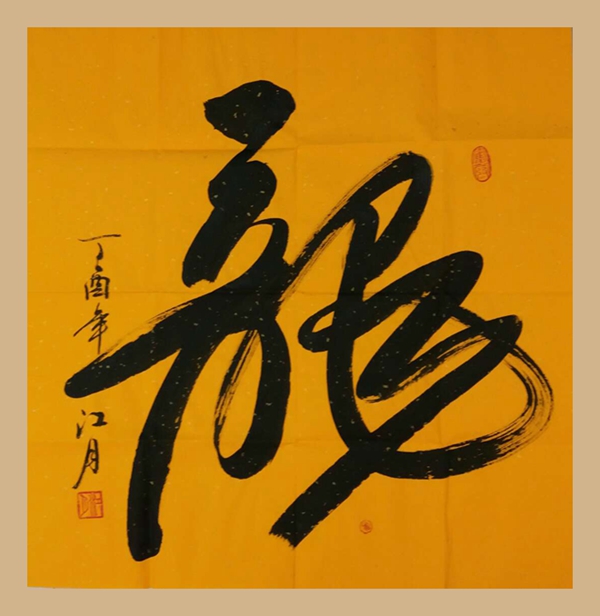 龍
丁酉年 江月